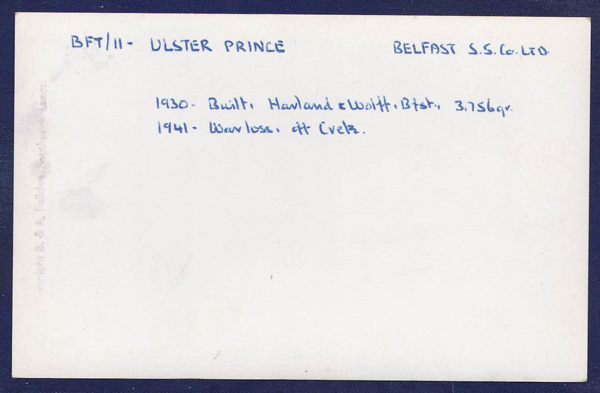 BFT/11- ULSTER PRINCE BELFAST S.S.Co.LTD
1930- Built, Harland & Wolff, Bfst., 3,756gr.
1941- War loss, off Crete.
Copyright B. & A. Feilden